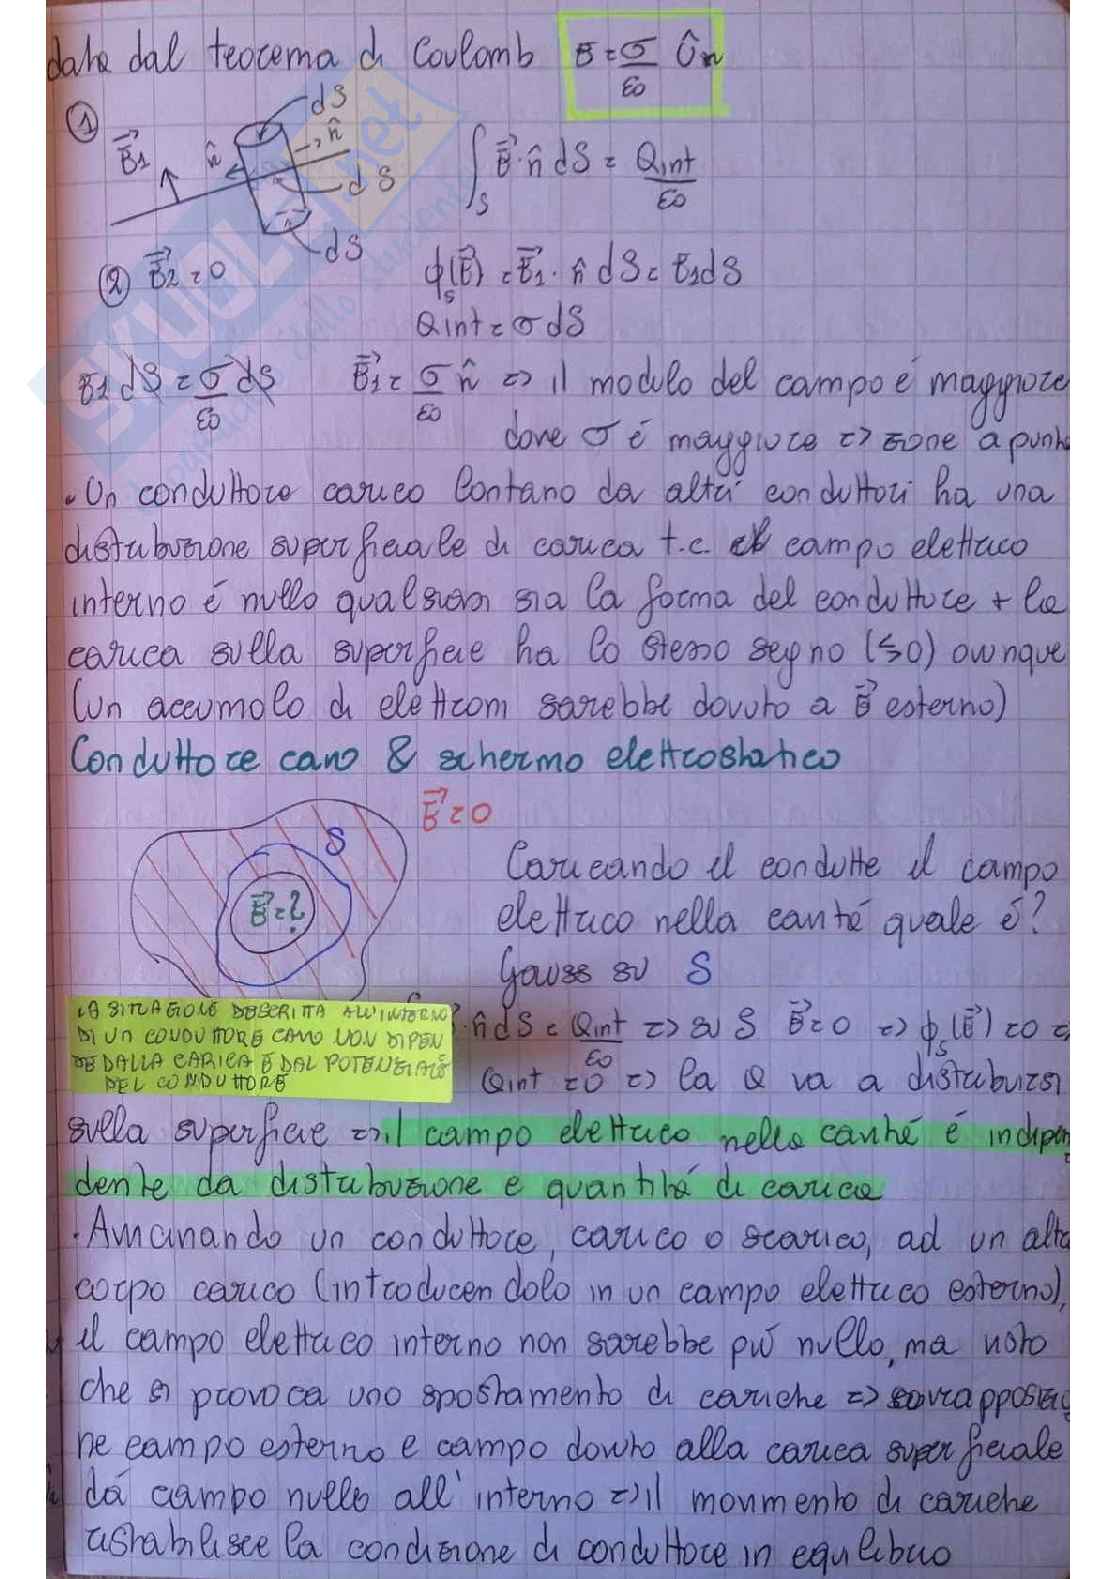 data dal teorema di Coulomb E = σ/ε0 Ûn
① dS
E⃗1 n̂ n̂ ∫S E⃗·n̂ dS = Qint/ε0
dS
dS
② E⃗2 = 0 ϕS(E⃗) = E⃗1 · n̂ dS = E1dS
Qint = σ dS
E1 dS = σ/ε0 dS E⃗1 = σ/ε0 n̂ => il modulo del campo é maggiore
dove σ é maggiore => zone a punta
• Un conduttore carico lontano da altri conduttori ha una
distribuzione superficiale di carica t.c. il campo elettrico
interno é nullo qualsiasi sia la forma del conduttore + la
carica sulla superficie ha lo stesso segno (≶0) ovunque
(un accumolo di elettroni sarebbe dovuto a E⃗ esterno)
Conduttore cavo & schermo elettrostatico
E⃗ = 0
S
Caricando il condutte il campo
E⃗ = ? elettrico nella cavitá quale é?
Gauss su S
LA SITUAZIONE DESCRITTA ALL'INTERNO
DI UN CONDUTTORE CAVO NON DIPEN
DE DALLA CARICA E DAL POTENZIALE
DEL CONDUTTORE
·n̂ dS = Qint/ε0 => su S E⃗=0 => ϕS(E⃗) =0 =
Qint = 0 => la Q va a distribuirsi
sulla superficie => il campo elettrico nella cavitá é indipen
dente da distribuzione e quantitá di carica
· Avvicinando un conduttore, carico o scarico, ad un altro
corpo carico (introducendolo in un campo elettrico esterno),
il campo elettrico interno non sarebbe piú nullo, ma visto
che si provoca uno spostamento di cariche => sovrapposizio
ne campo esterno e campo dovuto alla carica superficiale
dá campo nullo all'interno => il movimento di cariche
ristabilisce la condizione di conduttore in equilibrio
SKUOLA.net